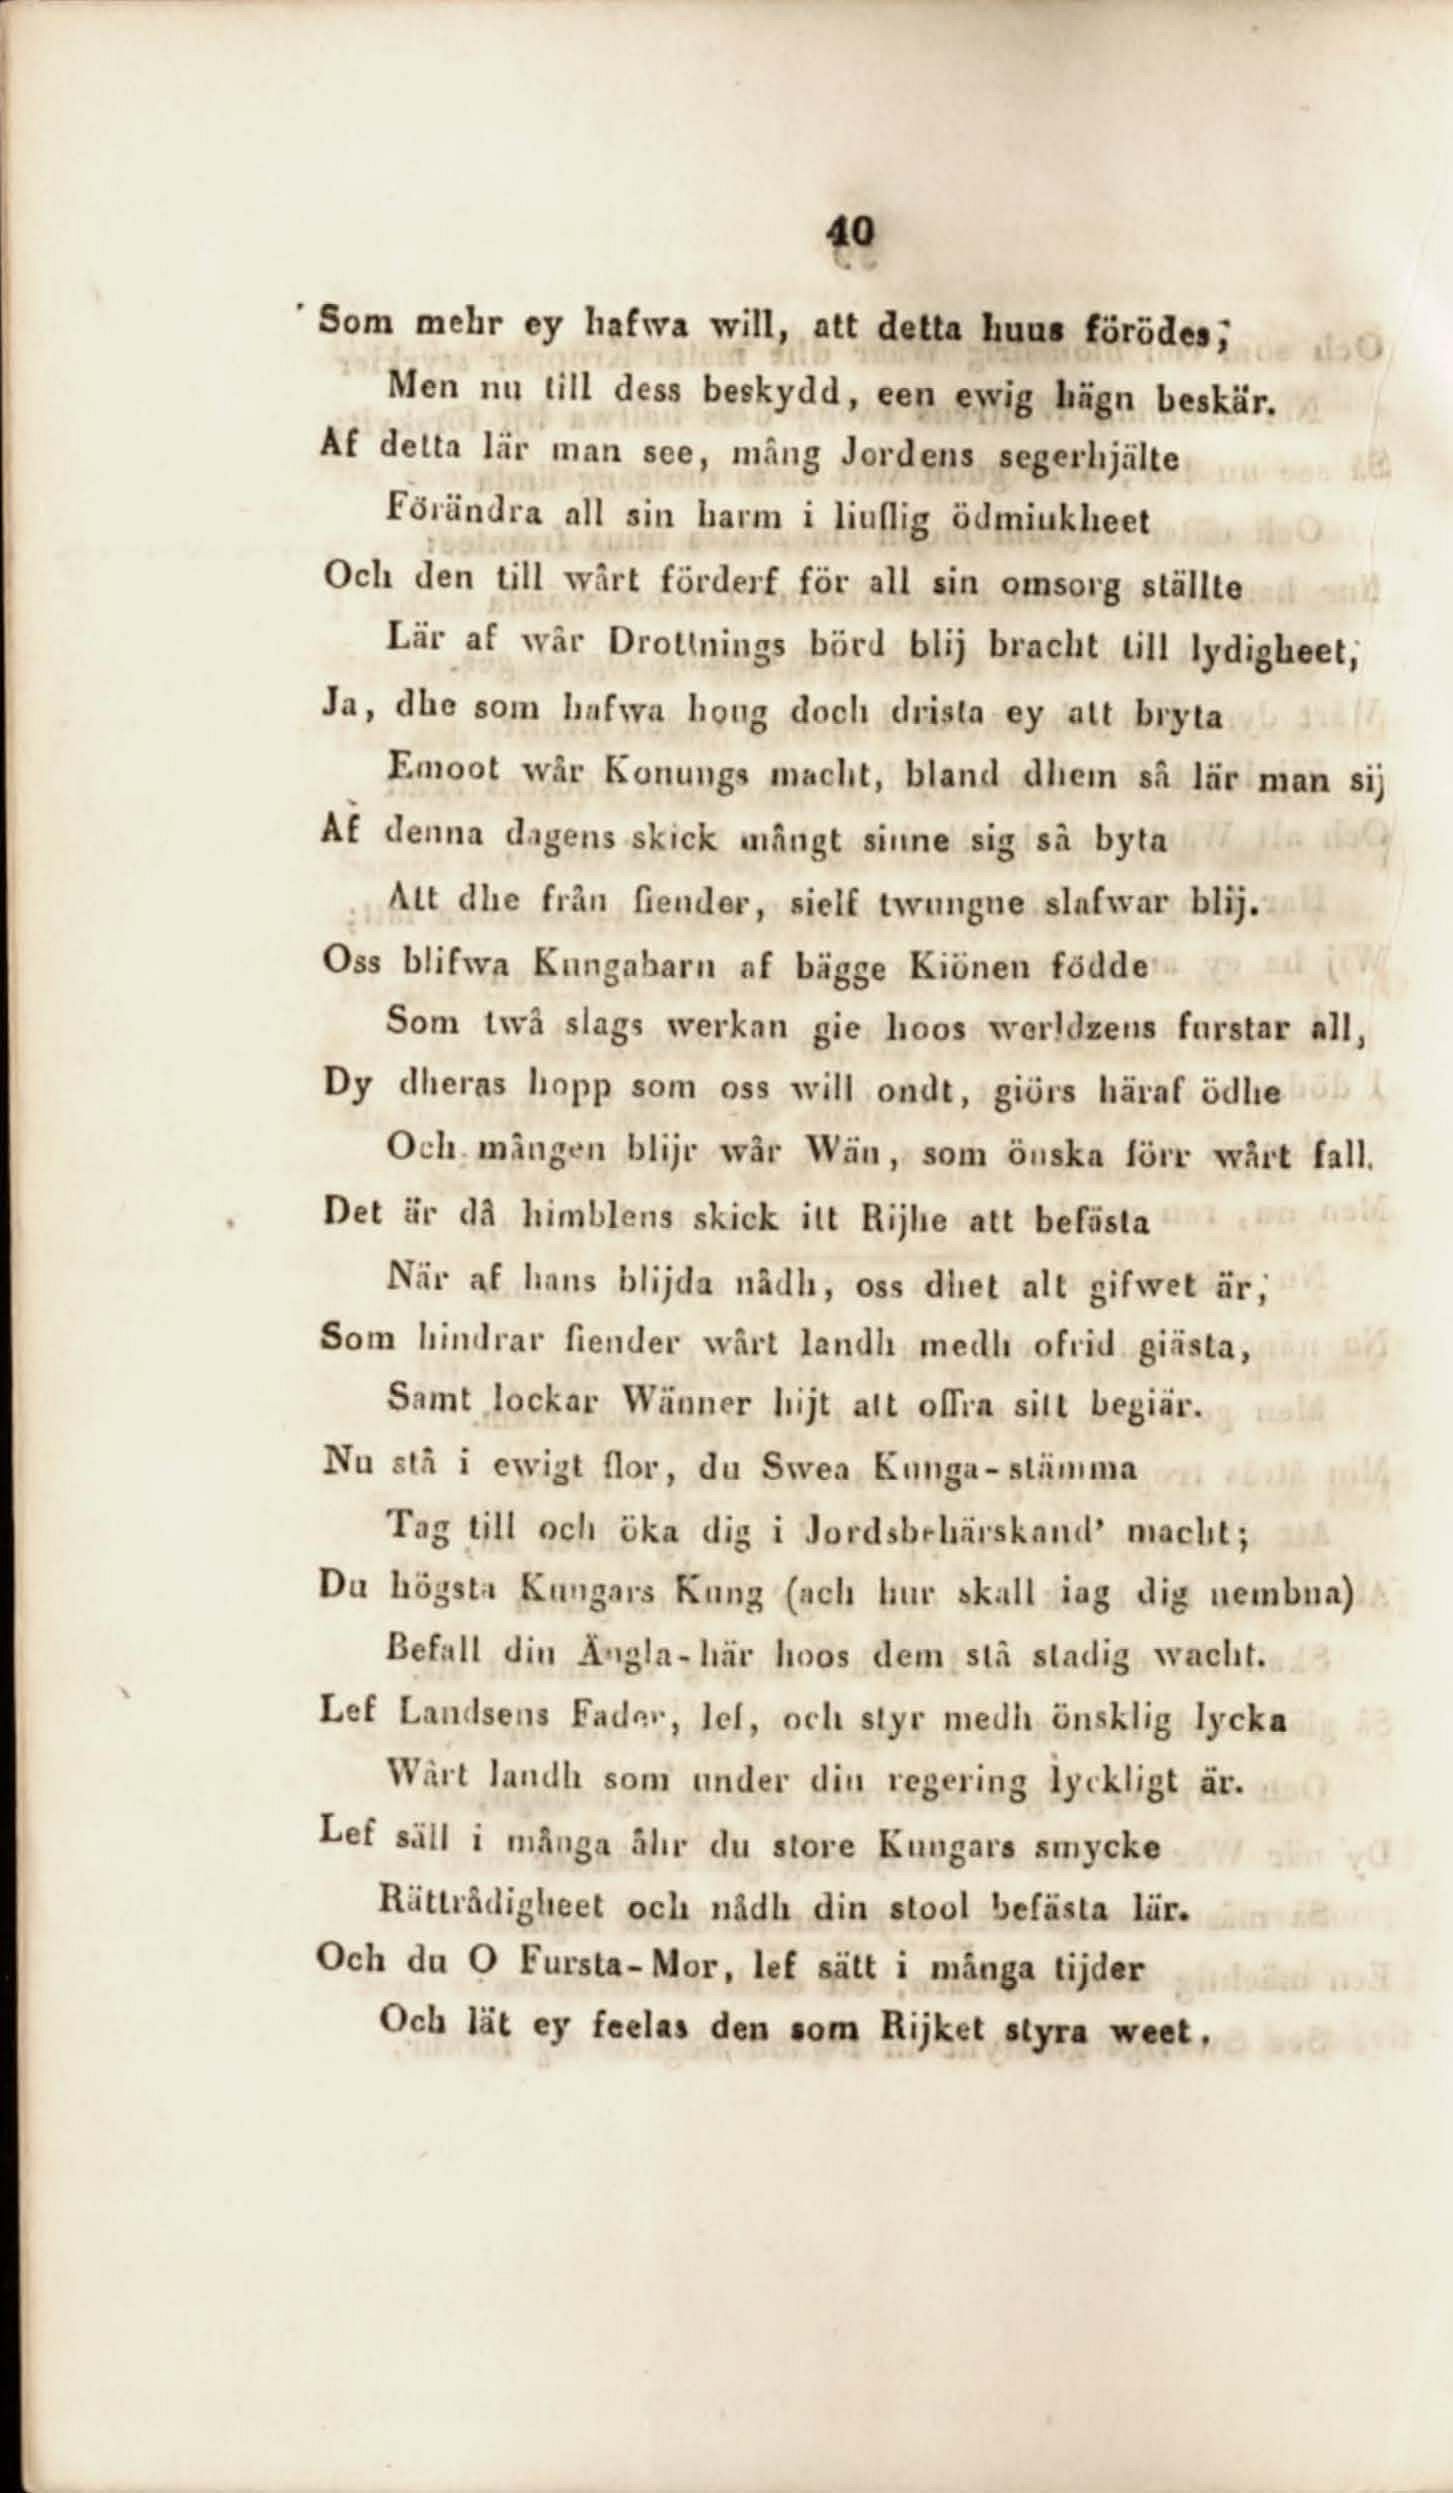 40
Som mehr ey hafwa will, att detta huus förödes;
Men nu till dess beskydd, een ewig hägn beskär.
Af detta lär man see, mång Jordens segerhjälte
Förändra all sin harm i liuflig ödmiukheet
Och den till wårt förderf för all sin omsorg ställte
Lär af wår Drottnings börd blij bracht till lydigheet;
Ja, dhe som hafwa houg doch drista ey att bryta
Emoot wår Konungs macht, bland dhem så lär man sij
Af denna dagens skick mångt sinne sig så byta
Att dhe från fiender, sielf twungne slafwar blij.
Oss blifwa Kungabarn af bägge Kiönen födde
Som twå slags werkan gie hoos werldzens furstar all,
Dy dheras hopp som oss will ondt, giörs häraf ödhe
Och mången blijr wår Wän, som önska förr wårt fall.
Det är då himblens skick itt Rijhe att befästa
När af hans blijda nådh, oss dhet alt gifwet är;
Som hindrar fiender wårt landh medh ofrid giästa,
Samt lockar Wänner hijt att offra sitt begiär.
Nu stå i ewigt flor, du Swea Kunga-stämma
Tag till och öka dig i Jordsbehärskand' macht;
Du högsta Kungars Kung (ach hur skall iag dig nembna)
Befall din Ängla-här hoos dem stå stadig wacht.
Lef Landsens Fader, lef, och styr medh önsklig lycka
Wårt landh som under din regering lyckligt är.
Lef säll i många åhr du store Kungars smycke
Rättrådigheet och nådh din stool befästa lär.
Och du O Fursta-Mor, lef sätt i många tijder
Och lät ey feelas den som Rijket styra weet.